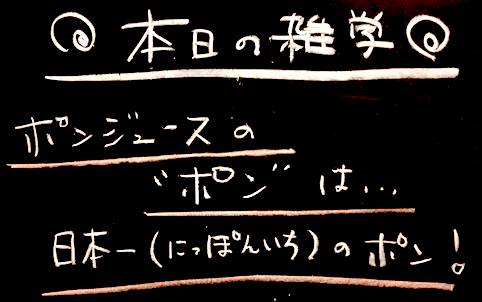 本日の雑学
ポンジュースの
"ポン" は...
日本一(にっぽんいち)のポン!